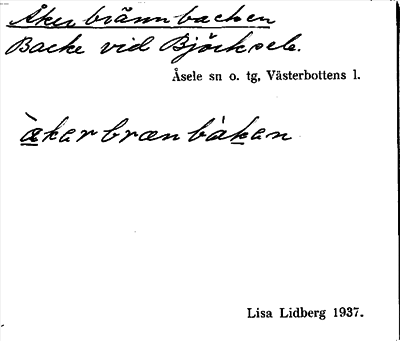 Åkerbrännbacken
Backe vid Björksele.
Åsele sn o. tg, Västerbottens l.
àkarbrænbàkan
Lisa Lidberg 1937.